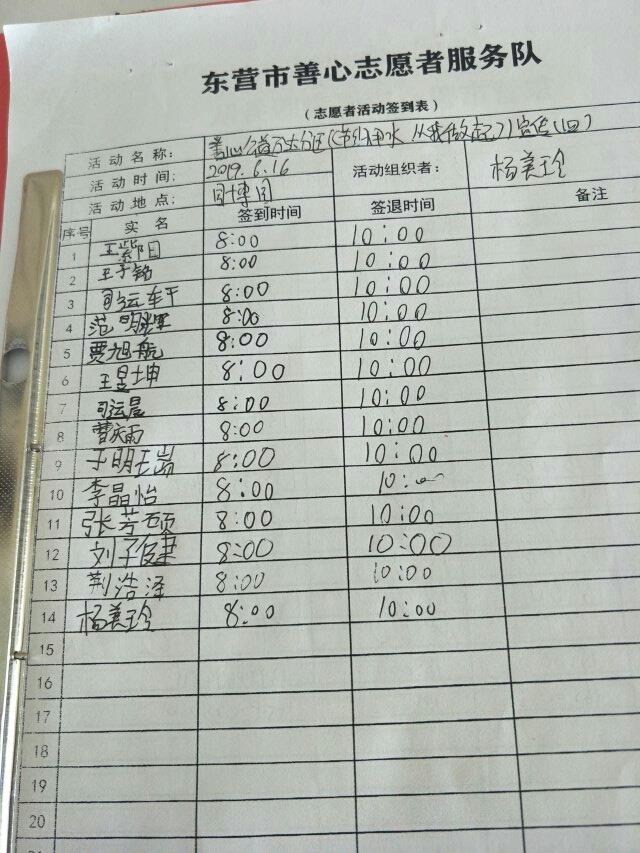 东营市善心志愿者服务队
（志愿者活动签到表）
活动名称：善心公益 (节约用水 从我做起) 宣传(四)
活动时间：2019.6.16 活动组织者：杨美玲
活动地点：园博园
序号 实名 签到时间 签退时间 备注
1 王紫阳 8:00 10:00
2 王子铭 8:00 10:00
3 司运车干 8:00 10:00
4 范明 8:00 10:00
5 贾旭航 8:00 10:00
6 王昱坤 8:00 10:00
7 司运晨 8:00 10:00
8 曹庆雨 8:00 10:00
9 于明 8:00 10:00
10 李晶怡 8:00 10:00
11 张芳硕 8:00 10:00
12 刘子健 8:00 10:00
13 荆浩泽 8:00 10:00
14 杨美玲 8:00 10:00
15
16
17
18
19
20